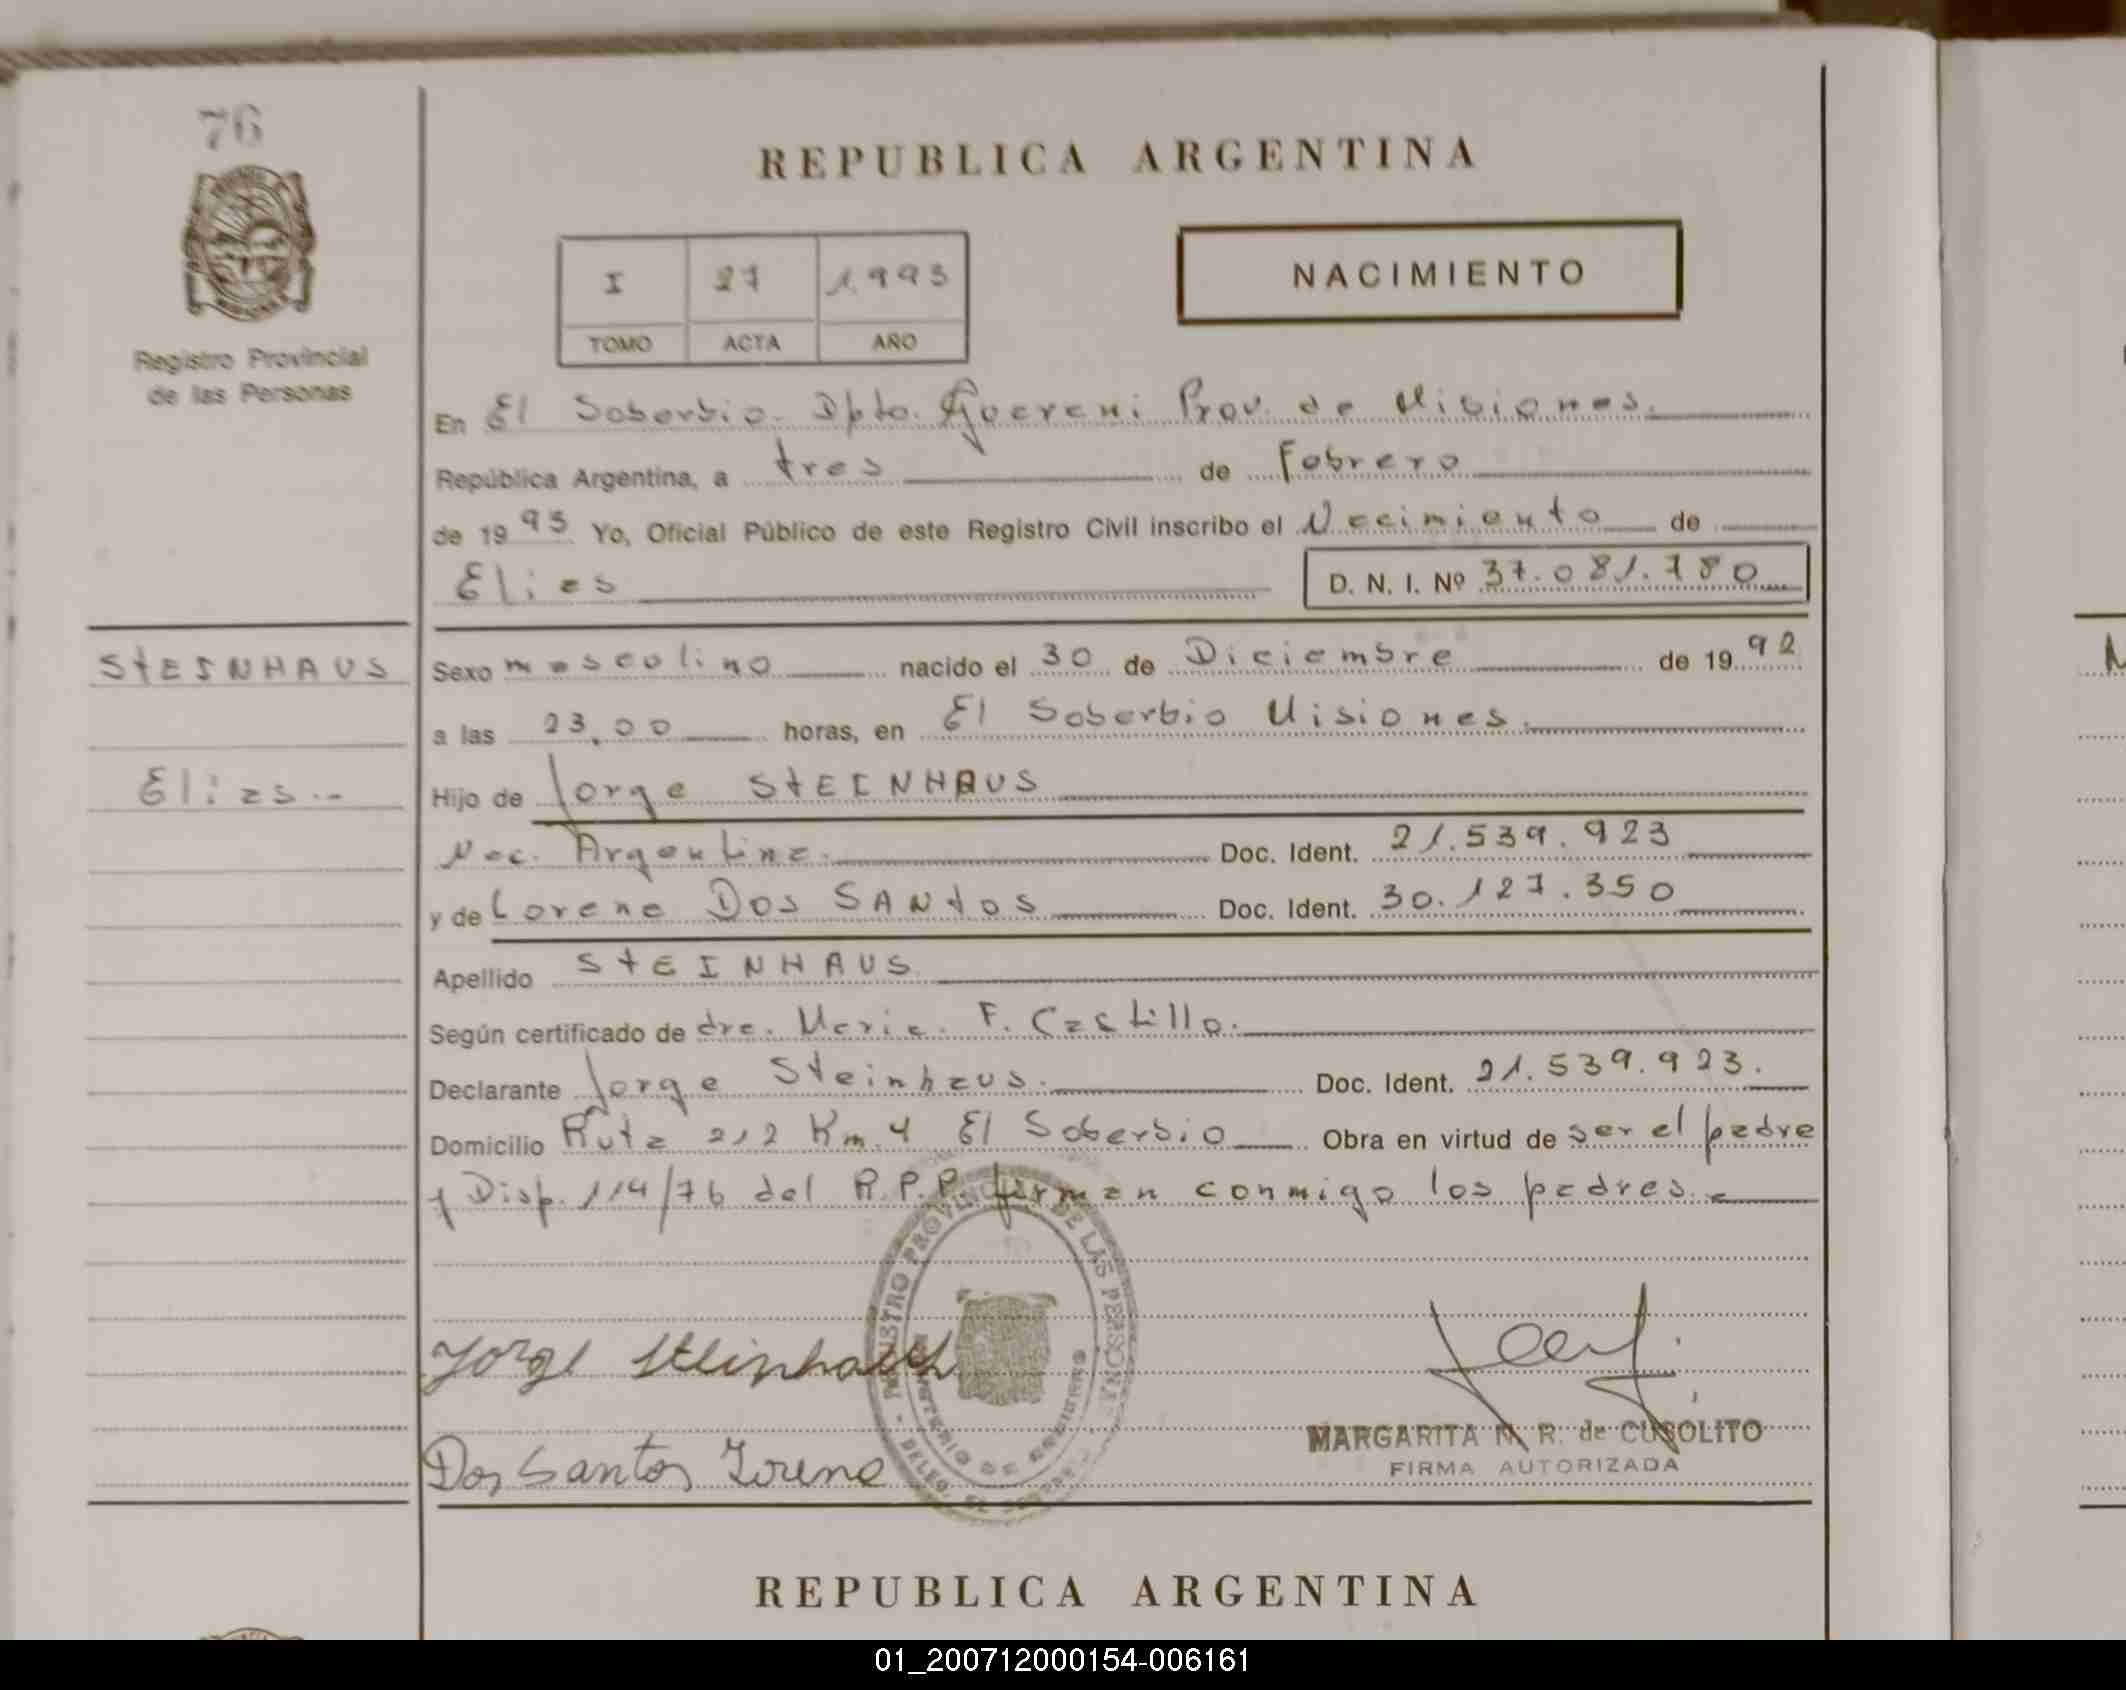 76
REPUBLICA ARGENTINA
I 27 1.993
TOMO ACTA AÑO
NACIMIENTO
Registro Provincial
de las Personas
En El Soberbio. Dpto. Guarani Prov. de Misiones.
República Argentina, a tres de Febrero
de 19 93 Yo, Oficial Público de este Registro Civil inscribo el Nacimiento de
Elias D. N. I. Nº 37.081.780
STEINHAUS
Elias.-
Sexo masculino nacido el 30 de Diciembre de 19 92
a las 23,00 horas, en El Soberbio Misiones.
Hijo de Jorge STEINHAUS
Nac. Argentina. Doc. Ident. 21.539.923
y de Lorena Dos SANtos Doc. Ident. 30.127.350
Apellido STEINHAUS
Según certificado de dra. Maria. F. Castillo.
Declarante Jorge Steinhaus. Doc. Ident. 21.539.923.
Domicilio Ruta 212 Km. 4 El Soberbio Obra en virtud de ser el padre
y Disp. 114/76 del R.P.P. firman conmigo los padres.
REGISTRO PROVINCIAL DE LAS PERSONAS
MINISTERIO DE GOBIERNO
Jorge Steinhaus
MARGARITA N. R. de CUSOLITO
FIRMA AUTORIZADA
Dos Santos Lorena
REPUBLICA ARGENTINA
01_200712000154-006161